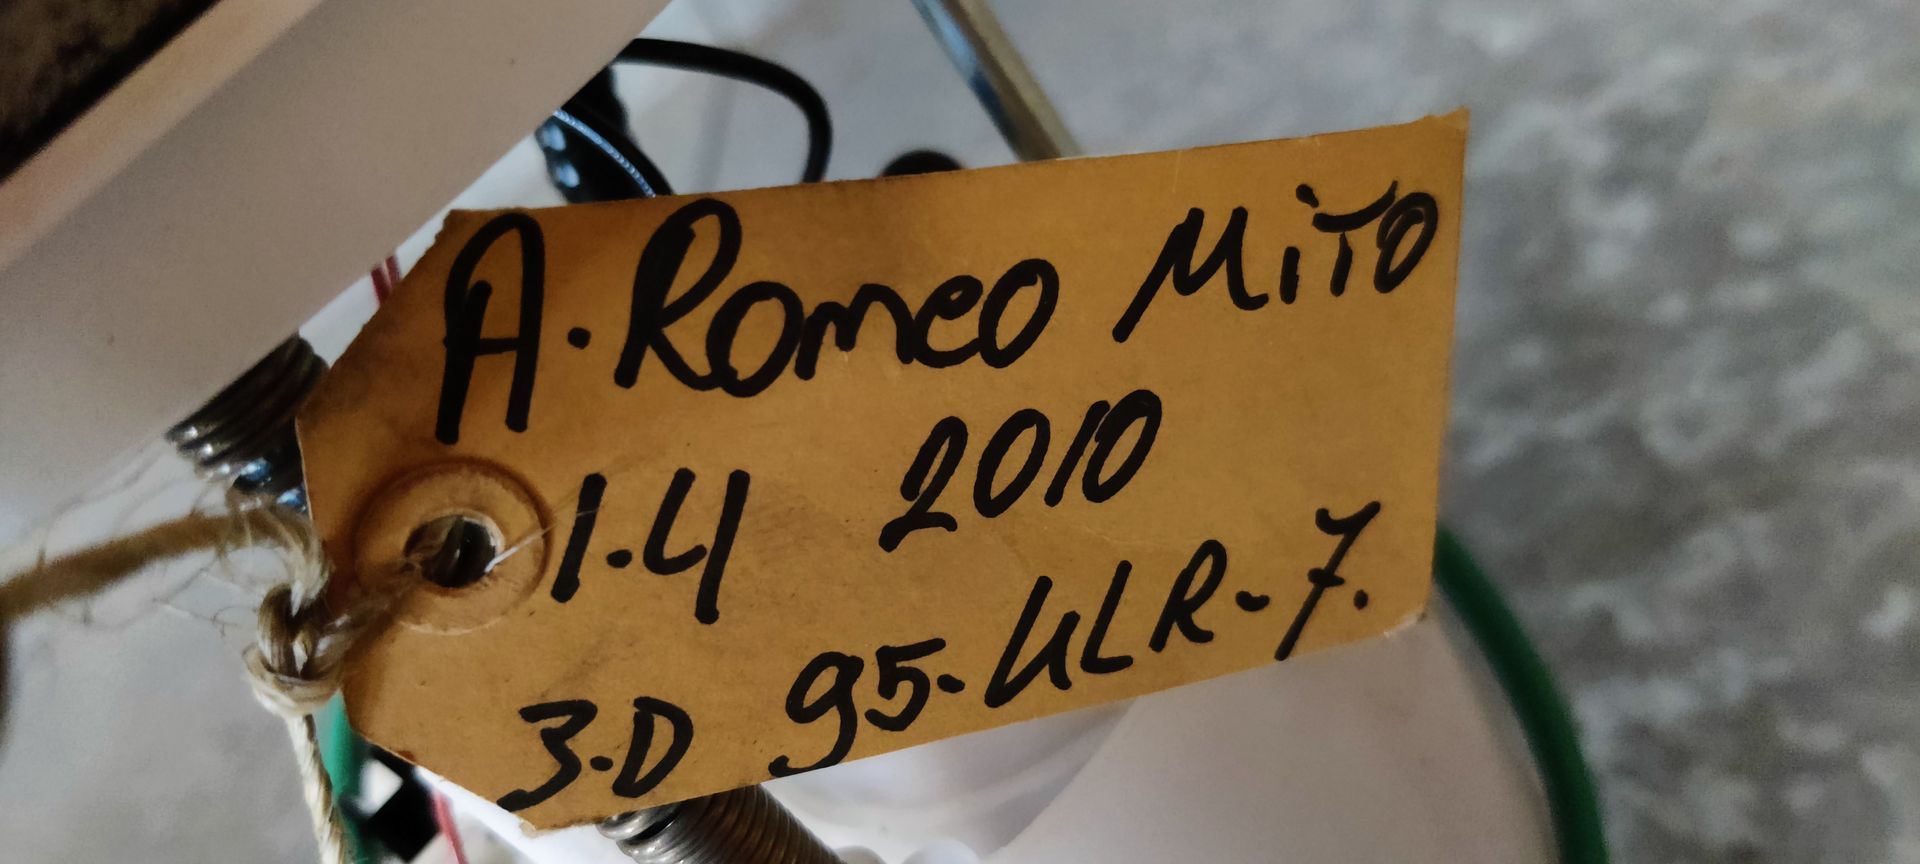 A. Romeo MiTO
1.4 2010
3.D 95-ULR-7.